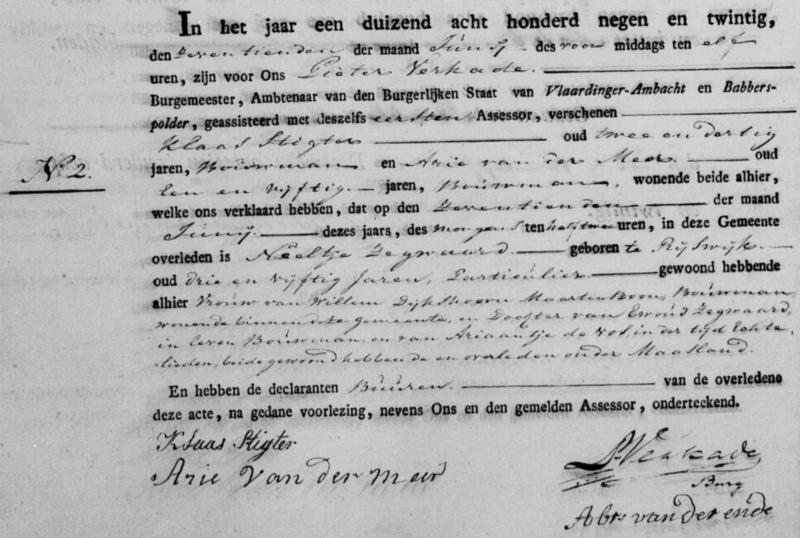 In het jaar een duizend acht honderd negen en twintig,
den Zeventienden der maand Junÿ des voor middags ten elf
uren, zijn voor Ons Pieter Verkade
Burgemeester, Ambtenaar van den Burgerlijken Staat van Vlaardinger-Ambacht en Babbers-
polder, geassisteerd met deszelfs eersten Assessor, verschenen
Klaas Stigter oud twee en dertig
No. 2.
jaren, Bouwman en Arie van der Meer oud
Een en vÿftig jaren, Bouwman, wonende beide alhier,
welke ons verklaard hebben, dat op den Zeventienden der maand
Junÿ dezes jaars, des morgens ten half twee uren, in deze Gemeente
overleden is Neeltje Zegwaard geboren te Rÿswÿk
oud drie en vÿftig Jaren, Particulier gewoond hebbende
alhier Vrouw van Willem Dÿkshoorn Maartenzoon, Bouwman
wonende binnen deze gemeente, en Dogter van Ewoud Zegwaard,
in leven Bouwman, en van Ariaantje de Vos, in der tÿd Echte-
lieden, beide gewoond hebbende en overleden onder Maasland.
En hebben de declaranten Buuren van de overledene
deze acte, na gedane voorlezing, nevens Ons en den gemelden Assessor, onderteekend.
Klaas Stigter
Arie van der meer
P Verkade
Burg
Abr van der ende